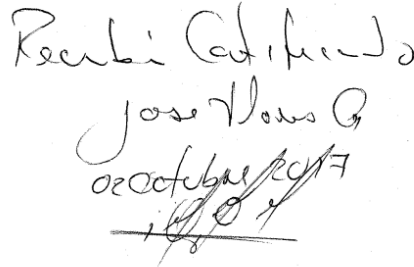 Recibí Certificado
Jose Flores G
02 Octubre 2017